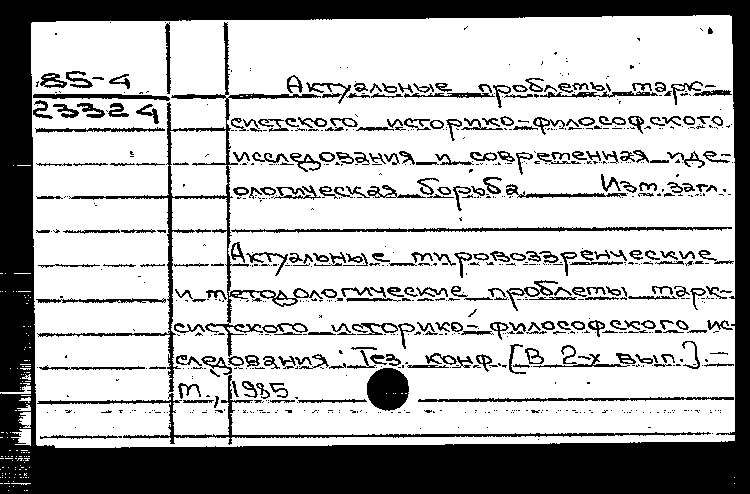 85-4
23324
Актуальные проблемы марк-
систского историко-философского
исследования и современная иде-
ологическая борьба Изм. загл.
Актуальные мировоззренческие
и методологические проблемы марк-
систского историко-философского ис-
следования: Тез. конф. [В 2-х вып.]. –
М., 1985.